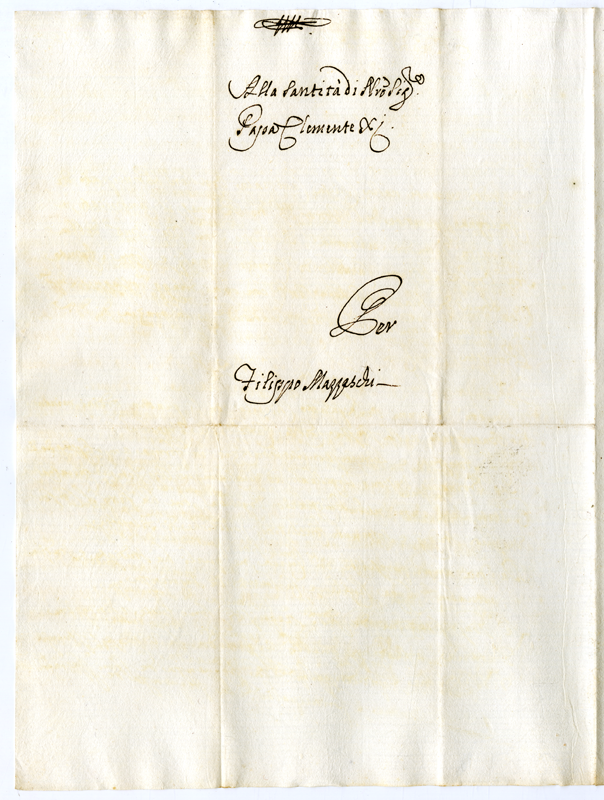 Alla Santità di Nro Sigre
Papa Clemente XI.
Per
Filippo Mazzaschi